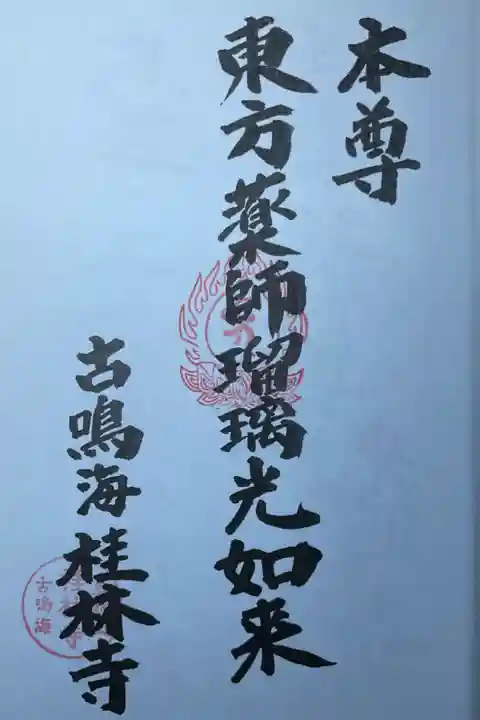 本尊
東方薬師瑠璃光如来
古鳴海桂林寺
古鳴海